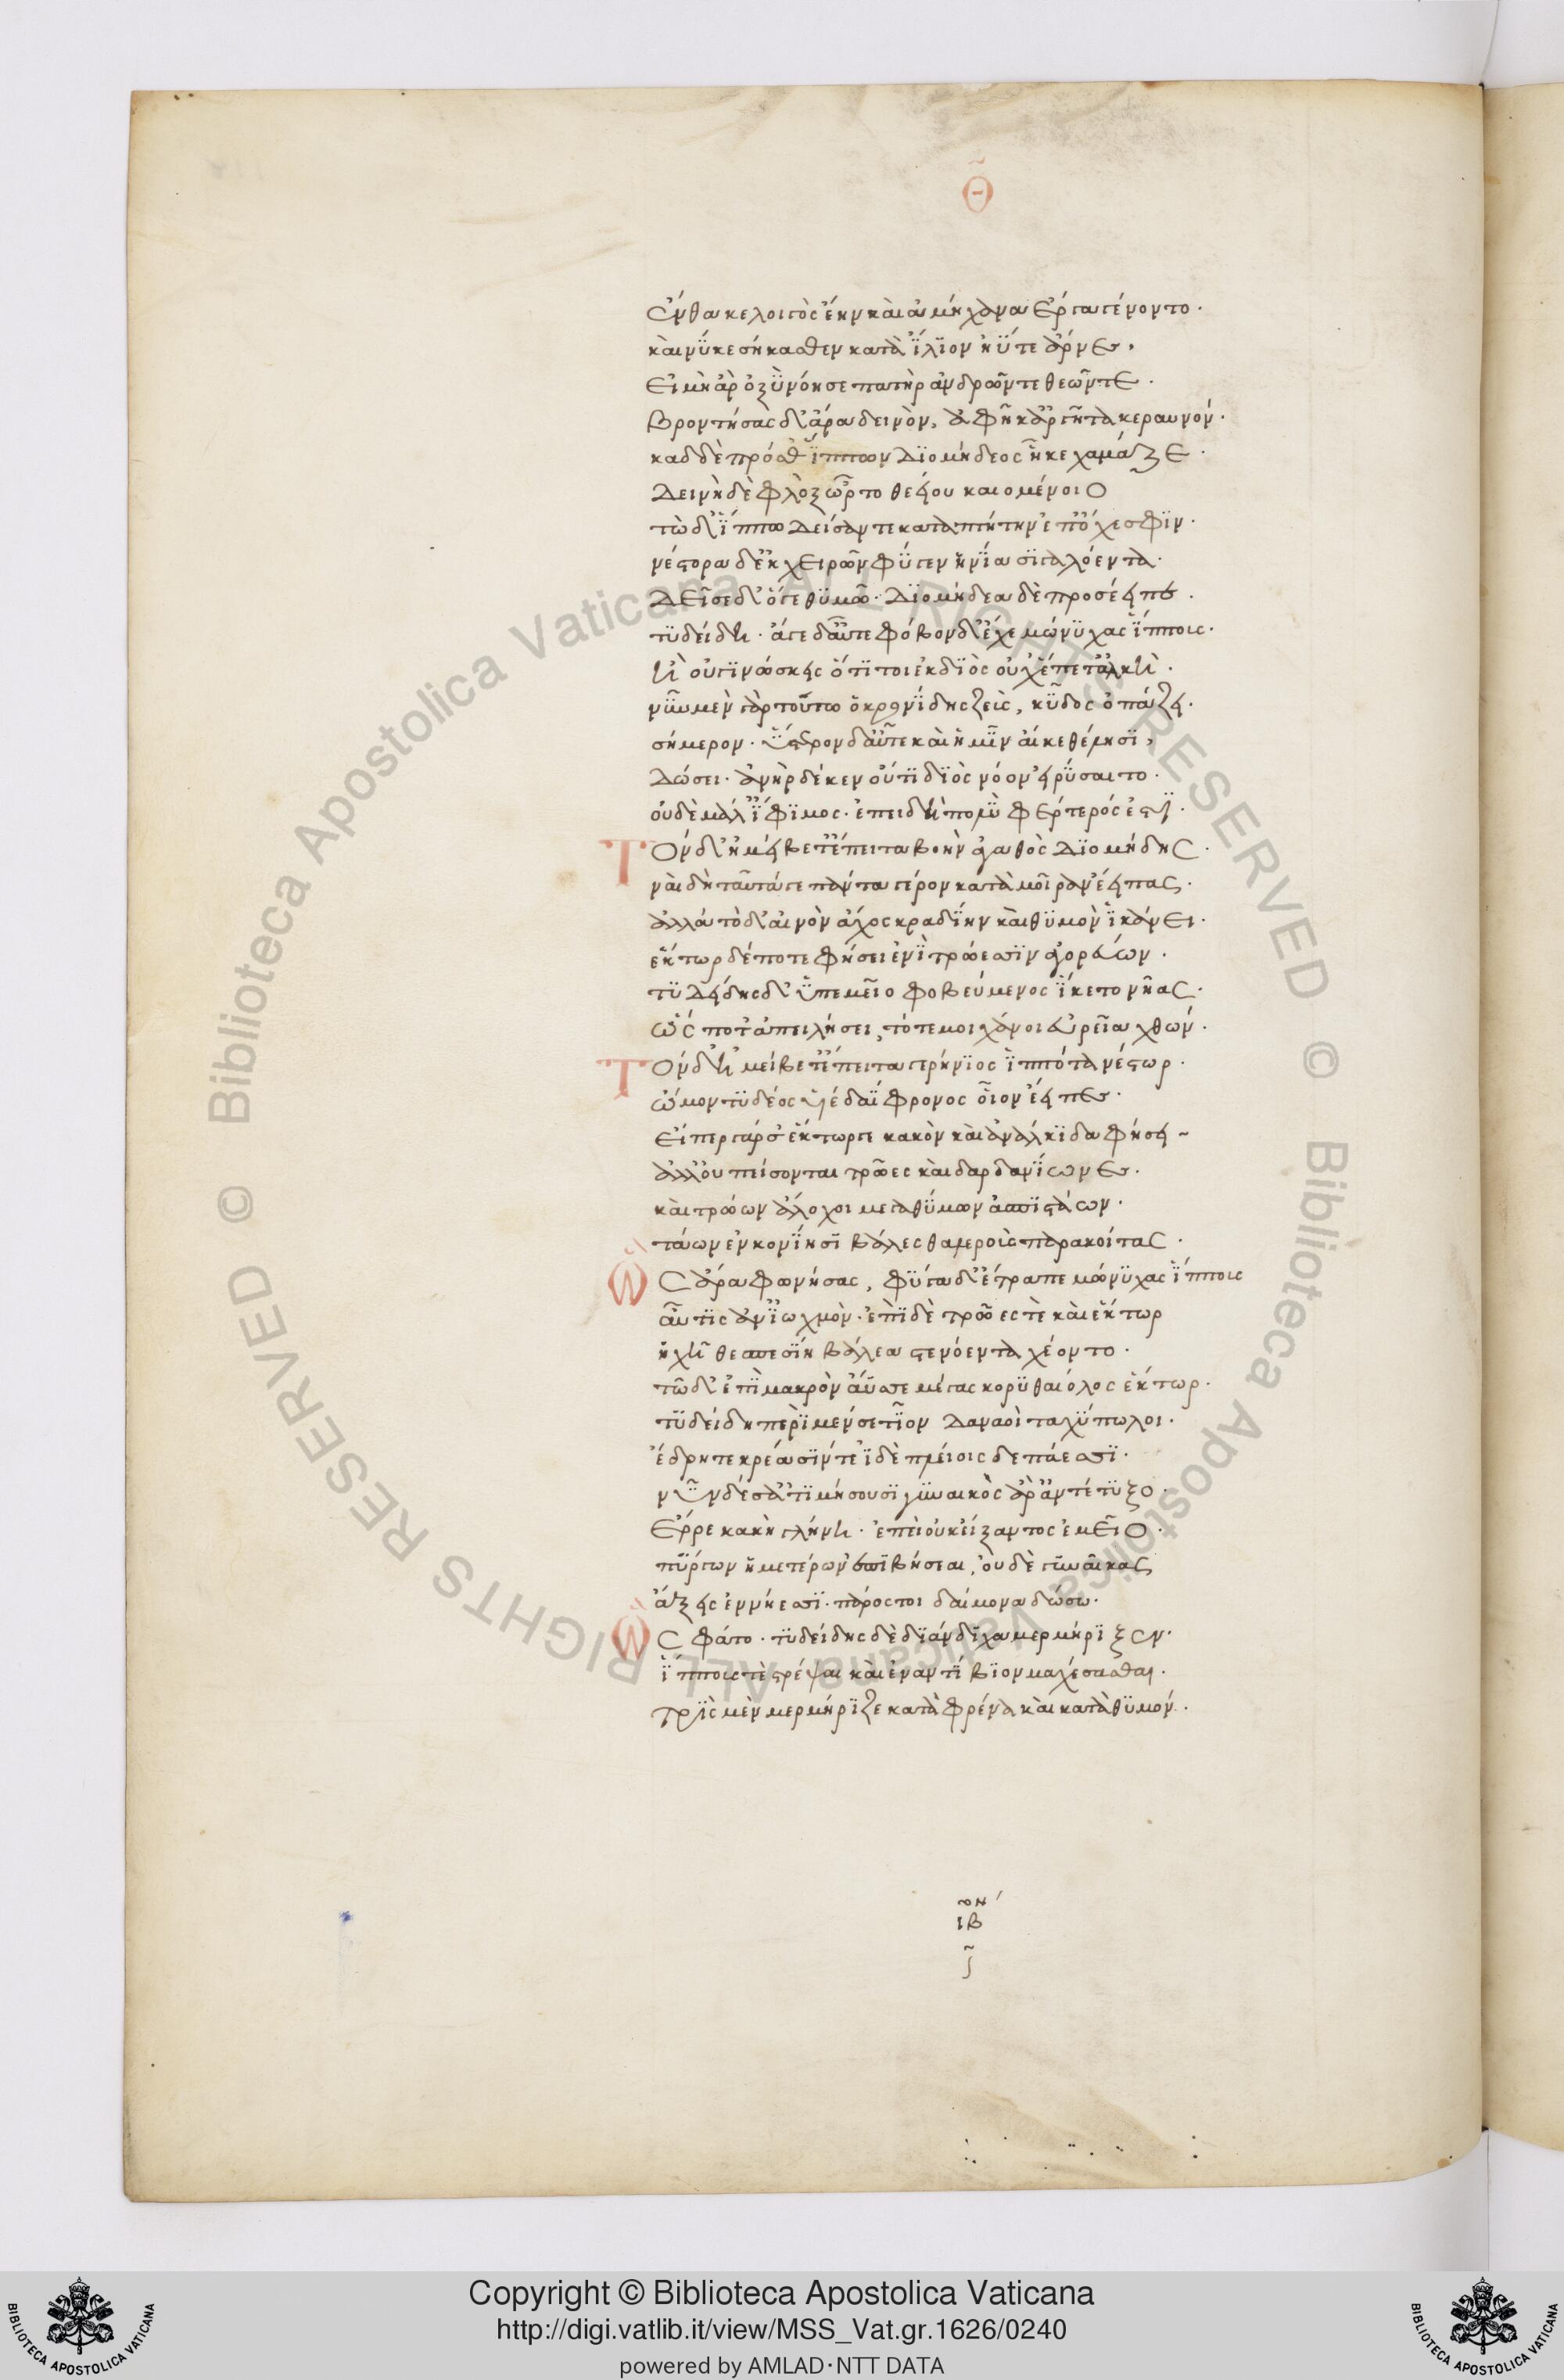 Θ
ἔνθα κε λοιγὸς ἔην καὶ ἀμήχανα ἔργα γένοντο·
καὶ νύ κε σήκασθεν κατὰ ἴλιον ἠΰτε ἄρνες·
εἰ μὴ ἄρ ὀξὺ νόησε πατὴρ ἀνδρῶν τε θεῶν τε·
βροντήσας δ' ἄρα δεινὸν, ἀφῆκ ἀργῆτα κεραυνόν·
καδδὲ πρόσθ' ἵππων Διομήδεος ἧκε χαμάζε·
Δεινὴ δὲ φλὸξ ὦρτο θεείου καιομένοιο
τὼ δ' ἵππω Δείσαντε καταπτήτην ἐπ' ὄχεσφιν·
νέστορα δ' ἐκ χειρῶν φύγεν ἡνία σιγαλόεντα·
Δεῖσε δ' ὅγε θυμῶ· Διομήδεα δὲ προσέειπε·
τυδείδη· ἄγε δ' αὖτε φόβον δ' ἔχε μώνυχας ἵππους·
ἢ οὐ γινώσκεις ὅτι τοι ἐκ διὸς οὐχ ἕπετ' ἀλκὴ·
νῦν μὲν γὰρ τούτω κρονίδης ζεὺς, κῦδος ὀπάζει·
σήμερον· ὕστερον δ' αὖτε καὶ ἡμῖν αἴκε θέλησι,
Δώσει· ἀνὴρ δέ κεν οὔτι διὸς νόον εἰρύσαιτο·
οὐδὲ μάλ' ἴφθιμος· ἐπειδὴ πολὺ φέρτερός ἐστι·
Τὸν δ' ἠμείβετ' ἔπειτα βοὴν ἀγαθὸς Διομήδης·
ναὶ δὴ ταῦτά γε πάντα γέρον κατὰ μοῖραν ἔειπας·
ἀλλὰ τὸ δ' αἰνὸν ἄχος κραδίην καὶ θυμὸν ἱκάνει·
ἕκτωρ δέ ποτε φήσει ἐνὶ τρώεσσιν ἀγορεύων·
τυδείδης δ' ὑπ' ἐμεῖο φοβεύμενος ἵκετο νῆας·
ὥς ποτ' ἀπειλήσει, τότε μοι χάνοι εὐρεῖα χθών·
Τὸν δ' ἠμείβετ' ἔπειτα γερήνιος ἱππότα νέστωρ·
ὤμοι τυδέος υἱὲ δαΐφρονος οἷον ἔειπες·
εἴπερ γάρ σ' ἕκτωρ γε κακὸν καὶ ἀνάλκιδα φήσει
ἀλλ' οὐ πείσονται τρῶες καὶ δαρδανίωνες·
καὶ τρώων ἄλοχοι μεγαθύμων ἀσπιστάων·
τάων ἐν κονίησι βάλες θαλεροὺς παρακοίτας·
Ὣς ἄρα φωνήσας, φύγα δ' ἔτραπε μώνυχας ἵππους
αὖτις ἀν' ἰωχμὸν· ἐπὶ δὲ τρῶές τε καὶ ἕκτωρ
ἠχῆ θεσπεσίη βέλεα στενόεντα χέοντο·
τῶ δ' ἐπὶ μακρὸν ἄϋσε μέγας κορυθαίολος ἕκτωρ·
τυδείδη περὶ μέν σε τῖον Δαναοὶ ταχύπωλοι·
ἕδρη τε κρέασίν τε ἰδὲ πλείοις δεπάεσσι·
νῦν δέ σ' ἀτιμήσουσι γυναικὸς ἄρ' ἀντέτυξο·
ἔρρε κακὴ γλήνη· ἐπεὶ οὐκ εἴξαντος ἐμεῖο·
πύργων ἡμετέρων ἐπιβήσεαι, οὐδὲ γυναῖκας
ἄξεις ἐν νήεσσι· πάρος τοι δαίμονα δώσω·
Ὣς φάτο· τυδείδης δὲ διάνδιχα μερμήριξεν·
ἵππους τὲ στρέψαι καὶ ἐναντίβιον μαχέσασθαι·
Τρὶς μὲν μερμήριζε κατὰ φρένα καὶ κατὰ θυμόν·
ιβ